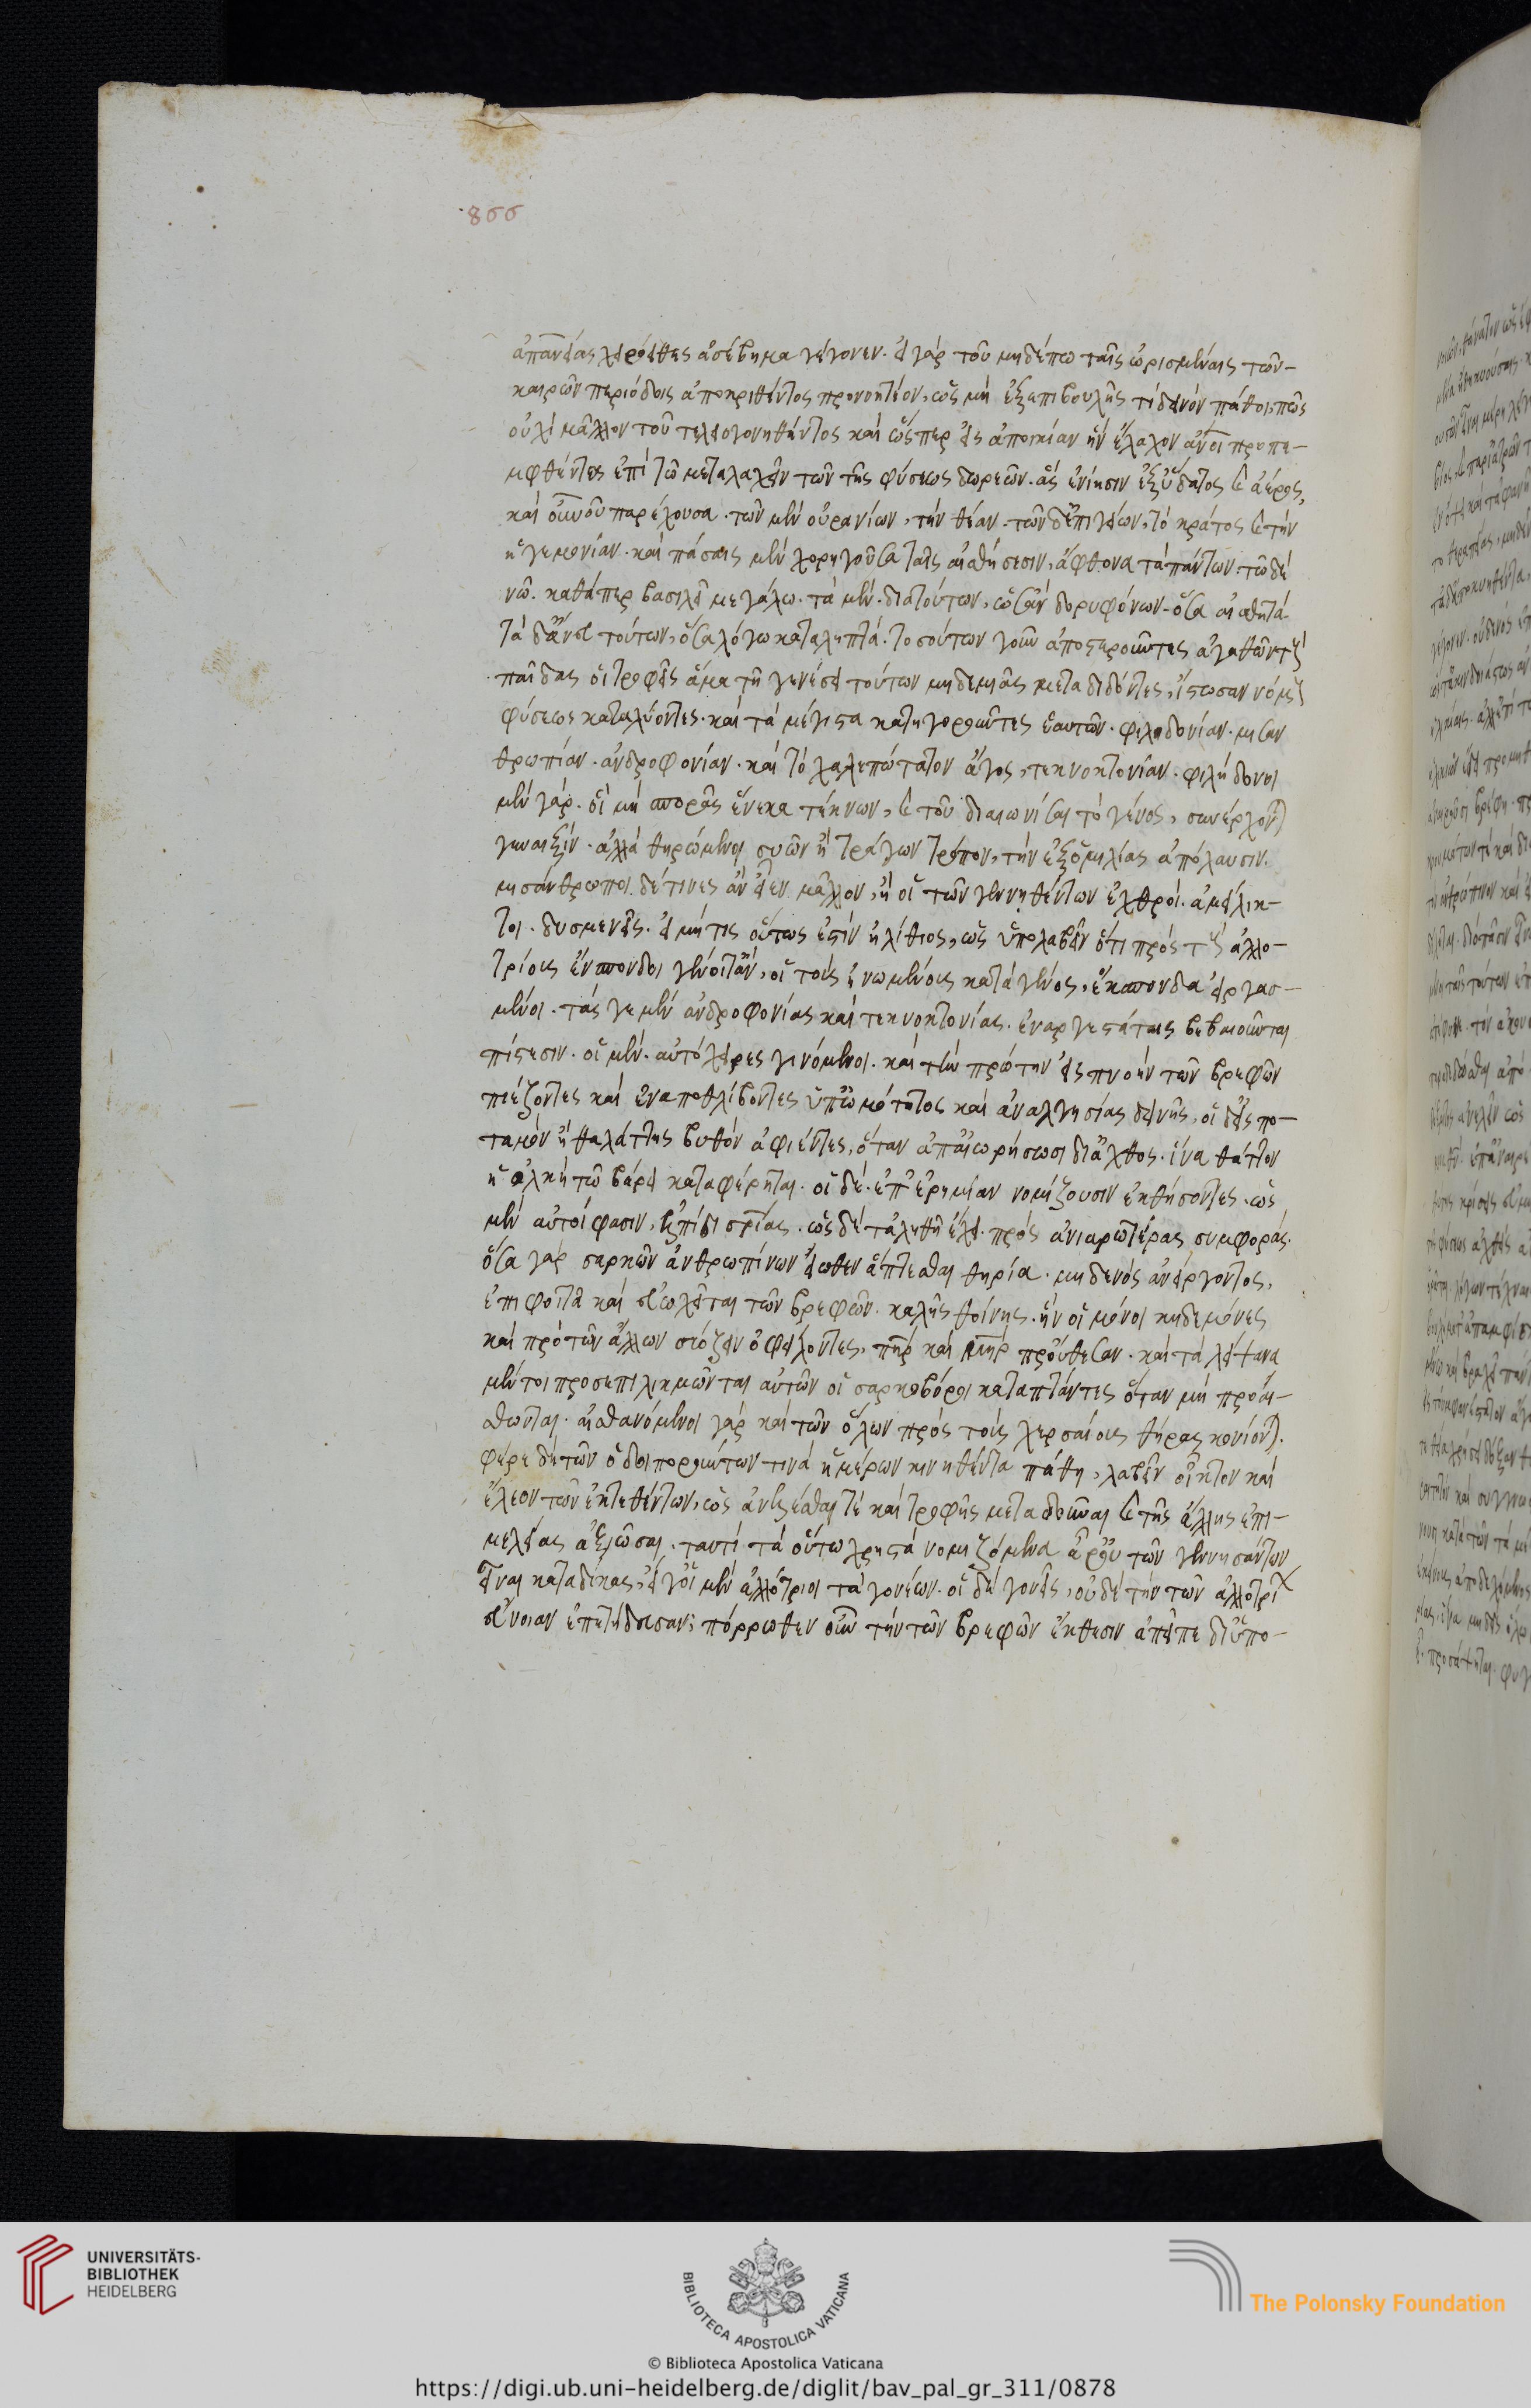 866
ἁπανθ(ρωπ)ίας χειρόηθες ἀσέβημα γέγονεν. εἰ γὰρ τοῦ μηδέπω ταῖς ὡρισμέναις τῶν
καιρῶν περιόδοις ἀποκριθέντος προνοητέον, ὡς μὴ ἐξ επιβουλῆς τὶ δεινὸν πάθοι, πῶς
οὐχὶ μᾶλλον τοῦ τελειογονηθέντος καὶ ὥσπερ εἰς ἀποικίαν ἣν ἔλαχον ἄνοι προπε-
μφθέντες ἐπὶ τῶ μεταλαχεῖν τῶν τῆς φύσεως δωρεῶν. ἃς ἐνίησιν ἐξ ὕδατος καὶ ἀέρος,
καὶ οὐνοῦ παρέχουσα. τῶν μὲν οὐρανίων, τὴν θέαν. τῶν δ' ἐπιγείων, τὸ κράτος καὶ τὴν
ἡγεμονίαν. καὶ πάσαις μὲν χορηγοῦσα ταῖς αἰσθήσεσιν, ἄφθονα τὰ πάντων. τῶ δὲ
νῶ. καθάπερ βασιλεῖ μεγάλω. τὰ μὲν. διὰ τούτων, ὡσὰν δορυφόνων. ὅσα αἰσθητά.
τὰ δ' ἄνευ τούτων, ὅσα λόγω καταληπτά. τοσούτων γοῦν ἀποστεροῦντες ἀγαθῶν τοὺς
παῖδας οἱ τροφεῖς ἅμα τῆ γενέσει τούτων μηδεμιᾶς μεταδιδόντες, ἴστωσαν νόμους
φύσεως καταλύοντες. καὶ τὰ μέγιστα κατηγοροῦντες ἑαυτῶν. φιληδονίαν. μισαν
θρωπίαν. ἀνδροφονίαν. καὶ τὸ χαλεπώτατον ἄγος, τεκνοκτονίαν. φιλήδονοι
μὲν γάρ. εἰ μὴ σπορᾶς ἕνεκα τέκνων, καὶ τοῦ διαιωνίσαι τὸ γένος, συνέρχονται
γυναιξίν. ἀλλὰ θηρώμενοι συῶν ἢ τράγων τρόπον, τὴν ἐξ ὁμιλίας ἀπόλαυσιν.
μισάνθρωποι. δὲ τίνες ἂν εἶεν μᾶλλον, ἢ οἱ τῶν γεννηθέντων ἐχθροί. ἀμείλικ-
τοι. δυσμενεῖς. εἰ μή τις οὕτως ἐστὶν ἠλίθιος, ὡς ὑπολαβεῖν ὅτι πρὸς τοὺς ἀλλο-
τρίους ἔνσπονδοι γένοιτ' ἄν, οἱ τοῖς ἡνωμένοις κατὰ γένος, ἔκσπονδα εἰργασ-
μένοι. τάς γε μὲν ἀνδροφονίας καὶ τεκνοκτονίας. ἐναργεστάταις βεβαιοῦνται
πίστεσιν. οἱ μέν. αὐτόχειρες γινόμενοι. καὶ τὴν πρώτην εἰσπνοὴν τῶν βρεφῶν
πιέζοντες καὶ ἐναποθλίβοντες ὑπ' ὠμότητος καὶ ἀναλγησίας δεινῆς, οἱ δ' εἰς πο-
ταμὸν ἢ θαλάττης βυθὸν ἀφιέντες, ὅταν ἀπαιωρήσωσι δι' ἄχθος. ἵνα θᾶττον
ἡ ὁλκὴ τῶ βάρει καταφέρηται. οἱ δέ. ἐπ' ἐρημίαν νομίζουσιν ἐκθήσοντες. ὡς
μὲν αὐτοί φασιν, ἐπὶ σρίας. ὡς δὲ τἀληθῆ ἔχει. πρὸς ἀνιαρωτέρας συμφοράς.
ὅσα γὰρ σαρκῶν ἀνθρωπίνων εἴωθεν ἅπτεσθαι θηρία. μηδενὸς ἀνείργοντος,
ἐπιφοιτᾶ καὶ εὐωχεῖται τῶν βρεφῶν. καλῆς θοίνης. ἣν οἱ μόνοι κηδεμόνες
καὶ πρὸ τῶν ἄλλων σώζειν ὀφείλοντες, πηρ καὶ μηρ προὔθεσαν. καὶ τὰ λείψανα
μέντοι προσεπιλικμῶνται αὐτῶν οἱ σαρκοβόροι καταπτάντες ὅταν μὴ προαί-
σθωνται. αἰσθανόμενοι γὰρ καὶ τῶν ὅλων πρὸς τοὺς χερσαίους θῆρας κονιόνται.
φέρε δὴ τῶν ὁδοιπορούντων τινὰ ἡμέρων κινηθέντα πάθη, λαβεῖν οἶκτον καὶ
ἔλεον τῶν ἐκτεθέντων, ὡς ἀνελέσθαι τὲ καὶ τροφῆς μεταδοῦναι καὶ τῆς ἄλλης ἐπι-
μελείας ἀξιῶσαι. ταυτὶ τὰ οὕτω χρηστὰ νομιζόμενα ἆρ' οὐ τῶν γεννησάντων
εἶναι καταδίκας, εἴ γ' οἱ μὲν ἀλλότριοι τὰ γονέων. οἱ δὲ γονεῖς, οὐδὲ τὴν τῶν ἀλλοτρί
εὔνοιαν ἐπετήδευσαν; πόρρωθεν οὖν τὴν τῶν βρεφῶν ἔκθεσιν ἀπεῖπε δι' ὑπο-
UNIVERSITÄTS-
BIBLIOTHEK
HEIDELBERG
BIBLIOTECA APOSTOLICA VATICANA
© Biblioteca Apostolica Vaticana
The Polonsky Foundation
https://digi.ub.uni-heidelberg.de/diglit/bav_pal_gr_311/0878